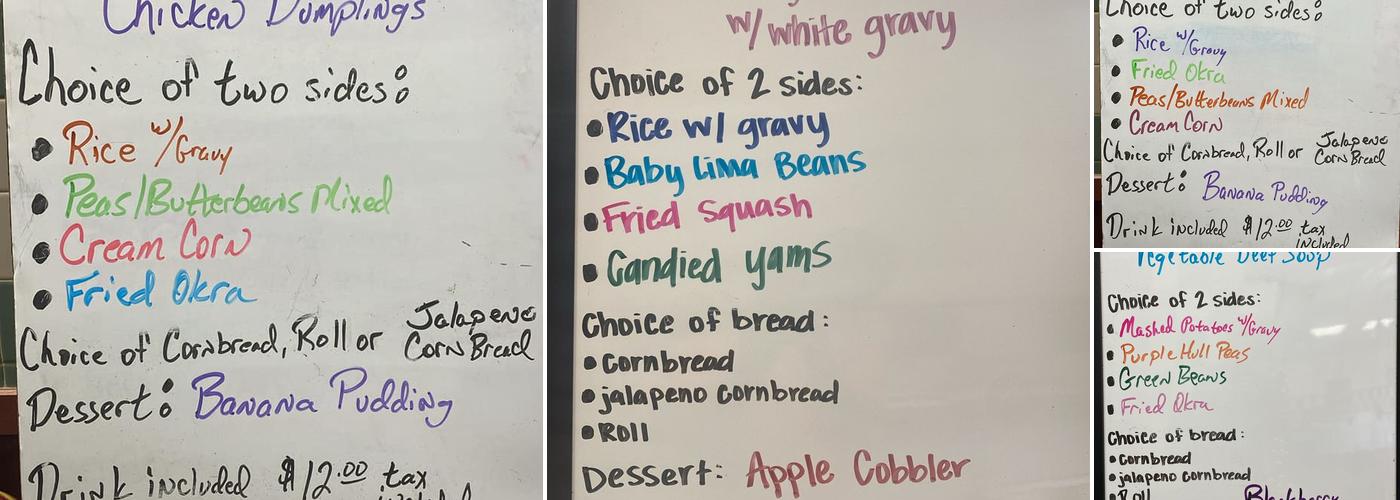 Chicken Dumplings
Choice of two sides:
Rice w/Gravy
Peas/Butterbeans Mixed
Cream Corn
Fried Okra
Choice of Cornbread, Roll or Jalapeno Corn Bread
Dessert: Banana Pudding
Drink included $12.00 tax
included
w/ white gravy
Choice of 2 sides:
Rice w/ gravy
Baby Lima Beans
Fried Squash
Candied yams
Choice of bread:
cornbread
jalapeno cornbread
Roll
Dessert: Apple Cobbler
Choice of two sides:
Rice w/Gravy
Fried Okra
Peas/Butterbeans Mixed
Cream Corn
Choice of Cornbread, Roll or Jalapeno Corn Bread
Dessert: Banana Pudding
Drink included $12.00 tax
included
Vegetable Beef Soup
Choice of 2 sides:
Mashed Potatoes w/Gravy
Purple Hull Peas
Green Beans
Fried Okra
Choice of bread:
cornbread
jalapeno cornbread
Roll
Blackberry